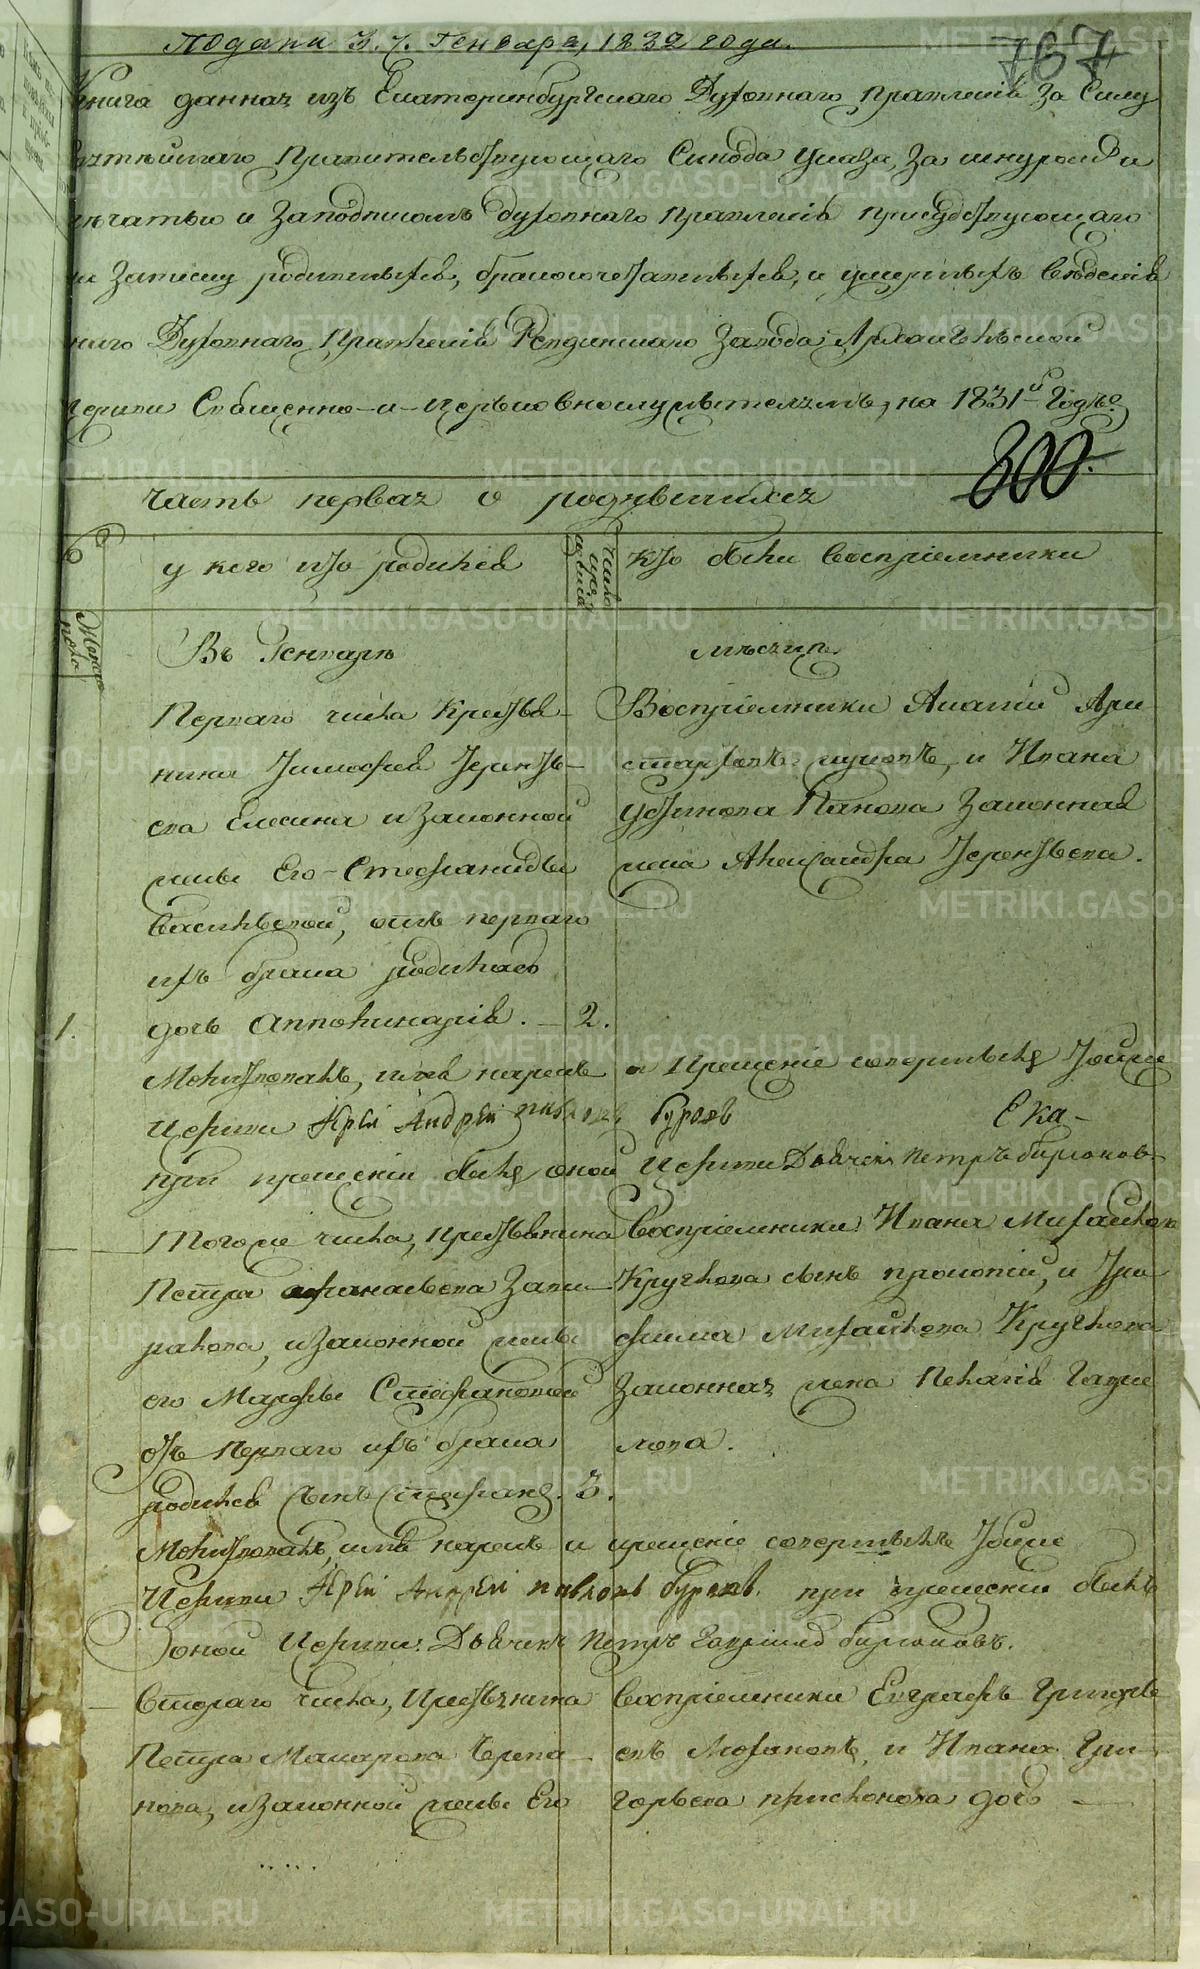 Подана З. 7. Генваря, 1832 года.
767
Книга данная изъ Екатеринбургскаго Духовнаго Правленія За Силу
Правительствующаго Синода указа, за шнуромъ и
печатью и Заподписомъ духовнаго правленія присудствующаго
Записку родившихся, бракосочетавшихся, и умершихъ Въдѣнія
Духовнаго Правленія Ревдинскаго Завода Архангельской
церкви Священно-и-Церьковнослужителямъ, на 1831й Годъ.
300.
часть первая о родившихся
у кого кто родился
Число
кто были воспріемники
Женска
пола
Въ Генварѣ
мѣсяцѣ.
Перваго числа Крестья-
нина Тимофея Терентье-
ева Елесина изаконной
жены Его-Стефаниды
Васильевой, отъ перваго
ихъ брака родилась
1.
дочь Апполинарія. - 2.
Воспріемники Акакій Ари
старховъ, и Ивана
Устинова Панова Законная
жена Александра Терентьева.
Молитвовалъ, имя нарекъ и Крещеніе совершилъ Тойже
Церкви Іерей Андрей Павловъ Буровъ
Ека-
при крещеніи былъ оной Церкви Дьячекъ Петръ Бирюковъ
Тогоже числа, Крестьянина
Петра афанасьева Запи-
ралова, изаконной жены
его Марфы Стефановой
отъ Перваго ихъ брака
родился Сынъ Стефанъ. 3.
Воспріемники Ивана Михайлова
Круглова сынъ прокопій, и Тро-
фима Михайлова Круглова
Законная жена Пелагія Гаври
лова.
Молитвовалъ, имя нарекъ и крещеніе совершилъ Тойже
Церкви Іерей Андрей павловъ буровъ. при крещеніи былъ
оной Церкви Дьячекъ Петръ Гавріилъ бирюковъ.
Втораго числа, Крестьянина
Петра Макарова Черепа-
нова, изаконной жены Его
воспріемники Евграфъ Григорье
евъ Мохановъ, и Ивана Гри-
горьева присконова дочь —